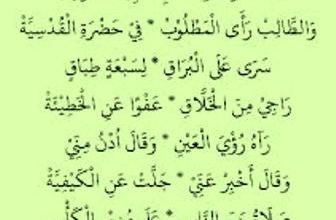 وَالطَّالِبْ رَأَى الْمَطْلُوبْ * فِيْ حَضْرَةِ الْقُدْسِيَّةْ
سَرَى عَلَى الْبُرَاقِ * لِسَبْعَةٍ طِبَاقِ
رَاجِيْ مِنَ الْخَلَّاقِ * عَفْوًا عَنِ الْخَطِيْئَةْ
رَآهُ رُؤْيَ الْعَيْنِ * وَقَالَ اُدْنُ مِنِّيْ
وَقَالَ أَخْبِرْ عَنِّيْ * جَلَّتْ عَنِ الْكَيْفِيَّةْ